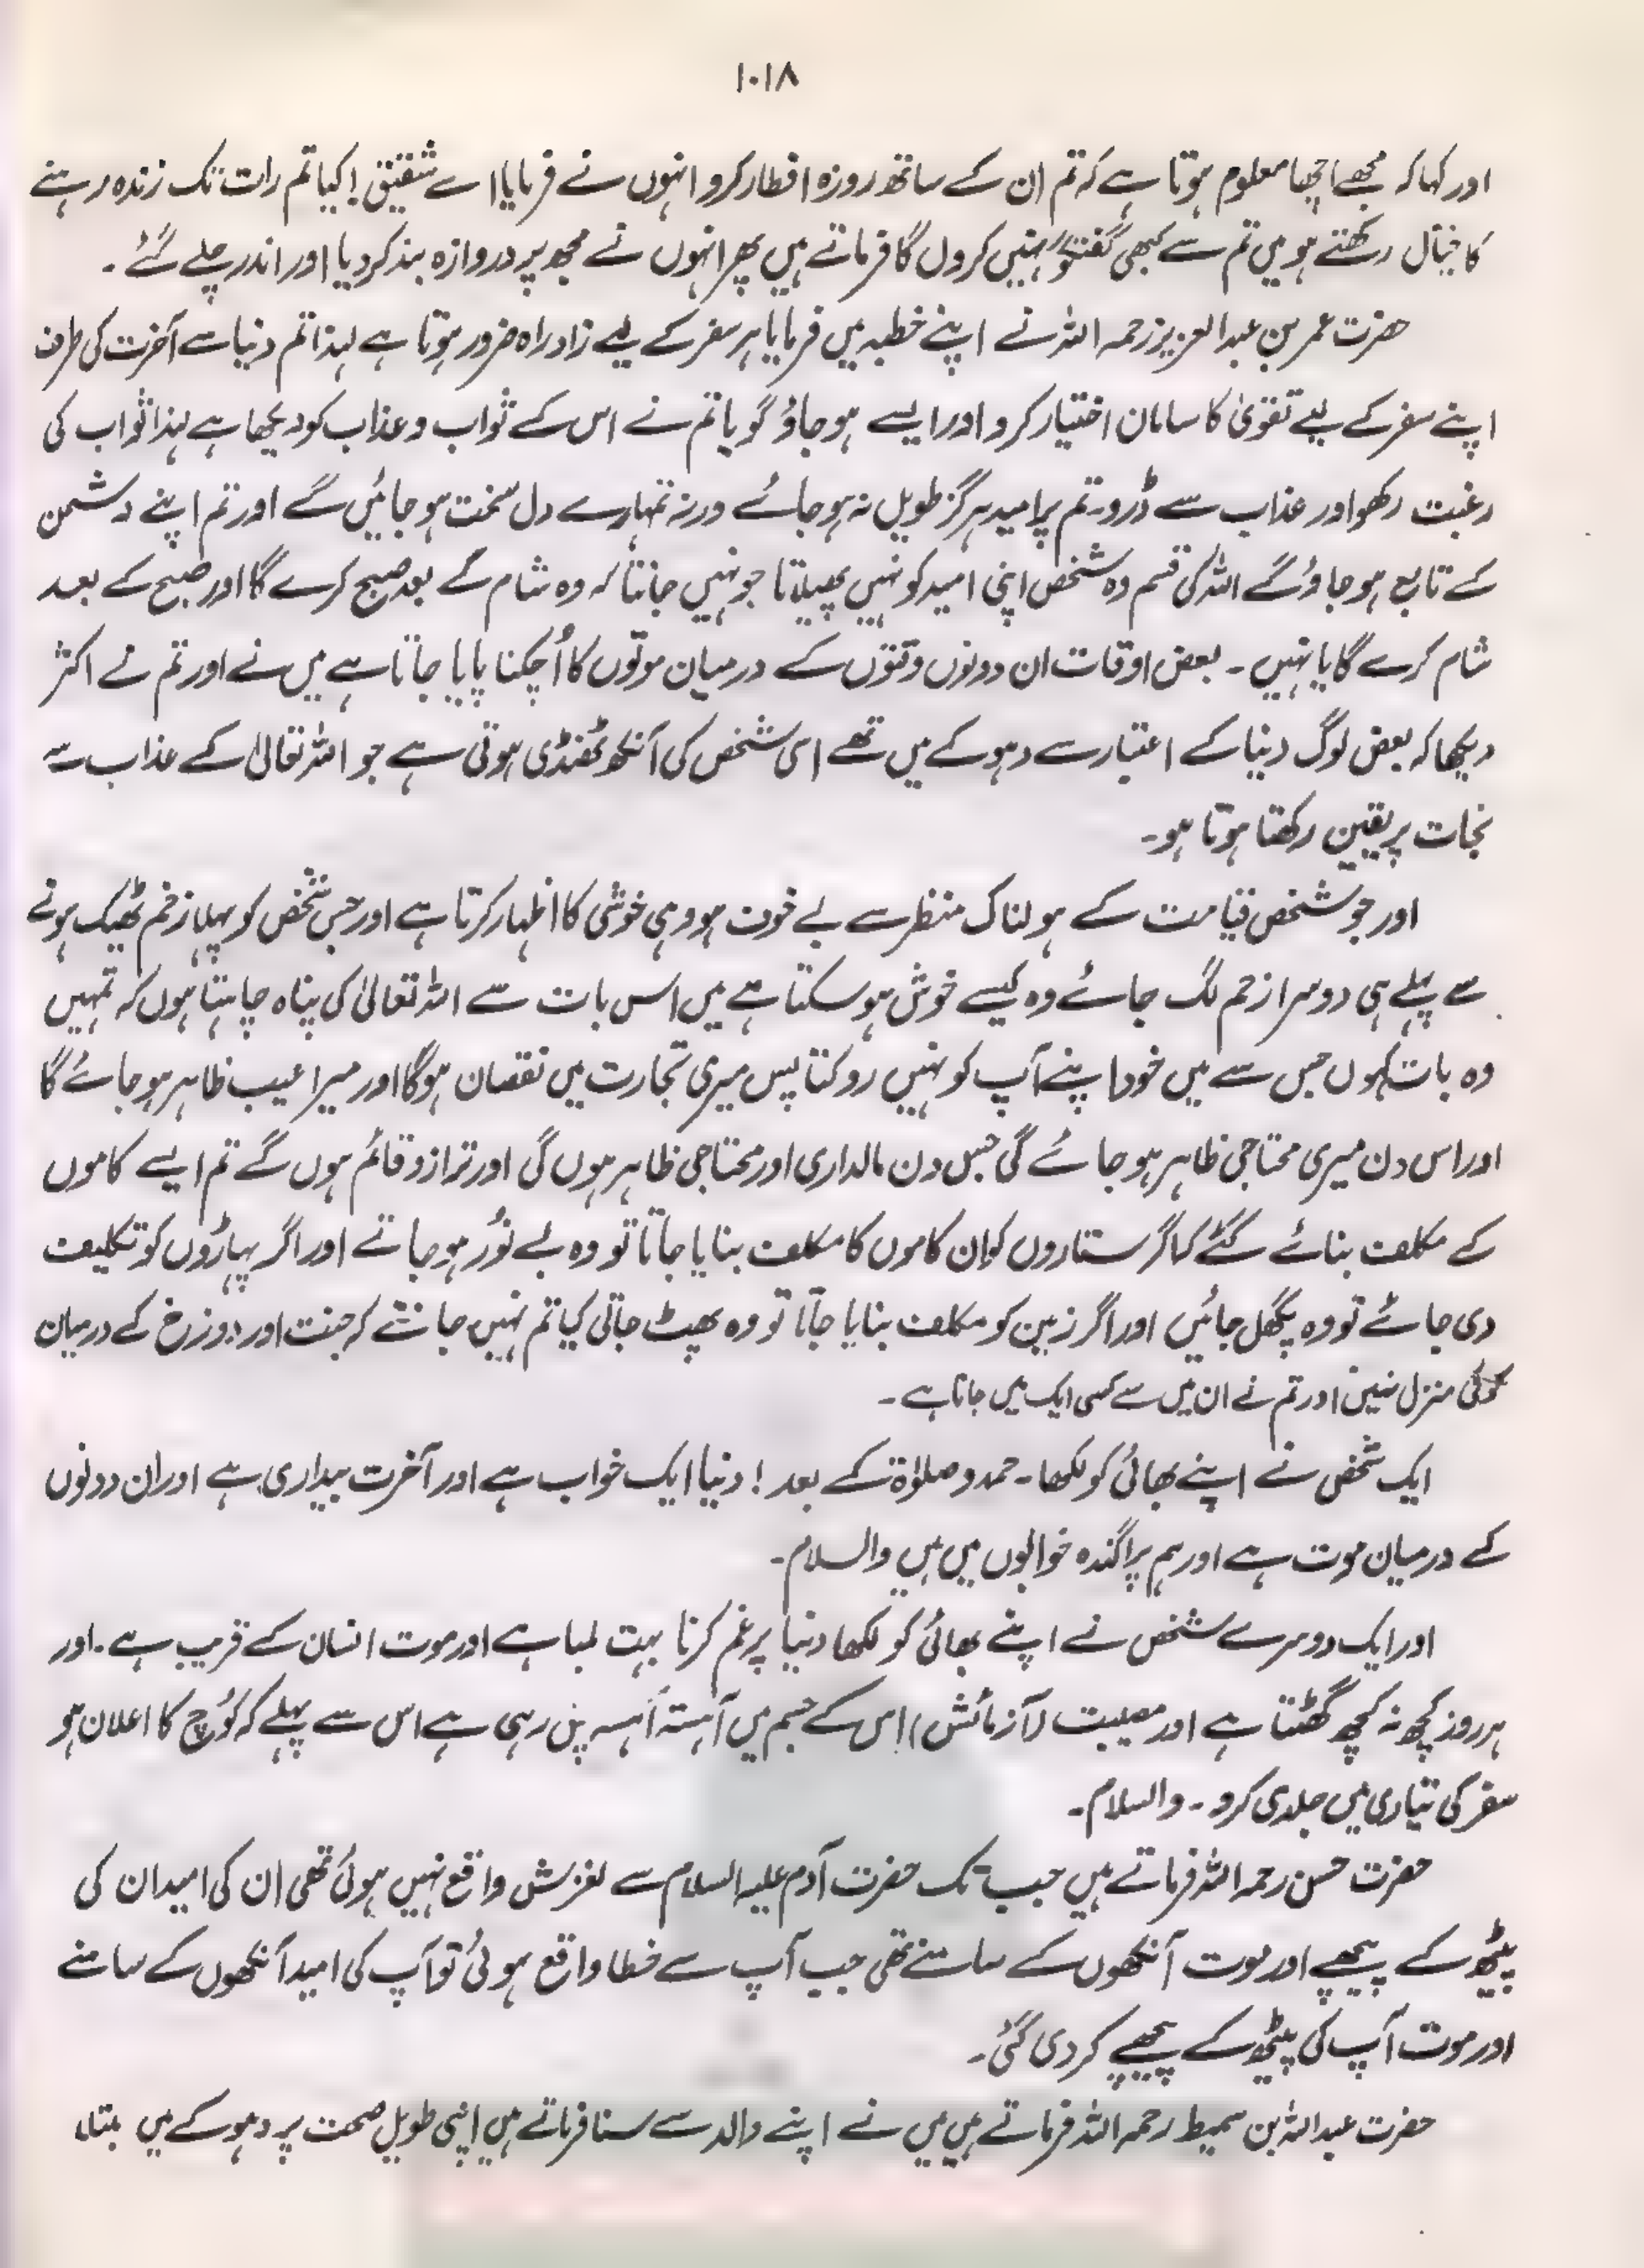 ۱۰۱۸
اور کہا کہ مجھے اچھا معلوم ہوتا ہے کہ تم ان کے ساتھ روزہ افطار کرو انہوں نے فرمایا اے شقیق! کیا تم رات تک زندہ رہنے
کا خیال رکھتے ہو میں تم سے کبھی گفتگو نہیں کروں گا فرماتے ہیں پھر انہوں نے مجھ پر دروازہ بند کر دیا اور اندر چلے گئے۔
حضرت عمر بن عبدالعزیز رحمہ اللہ نے اپنے خطبہ میں فرمایا ہر سفر کے لیے زادِ راہ ضرور ہوتا ہے لہذا تم دنیا سے آخرت کی طرف
اپنے سفر کے لیے تقویٰ کا سامان اختیار کرو اور ایسے ہو جاؤ گویا تم نے اس کے ثواب و عذاب کو دیکھا ہے لہذا ثواب کی
رغبت رکھو اور عذاب سے ڈرو۔ تم پر امید ہرگز طویل نہ ہو جائے ورنہ تمہارے دل سخت ہو جائیں گے اور تم اپنے دشمن
کے تابع ہو جاؤ گے اللہ کی قسم وہ شخص اپنی امید کو نہیں پھیلاتا جو نہیں جانتا کہ وہ شام کے بعد صبح کرے گا اور صبح کے بعد
شام کرے گا یا نہیں۔ بعض اوقات ان دونوں وقتوں کے درمیان موتوں کا اُچکنا پایا جاتا ہے میں نے اور تم نے اکثر
دیکھا کہ بعض لوگ دنیا کے اعتبار سے دہوکے میں تھے اسی شخص کی آنکھ ٹھنڈی ہوتی ہے جو اللہ تعالیٰ کے عذاب سے
نجات پر یقین رکھتا ہوتا ہو۔
اور جو شخص قیامت کے ہولناک منظر سے بے خوف ہو وہی خوشی کا اظہار کرتا ہے اور جس شخص کو پہلا زخم ٹھیک ہونے
سے پہلے ہی دوسرا زخم لگ جائے وہ کیسے خوش ہو سکتا ہے میں اس بات سے اللہ تعالیٰ کی پناہ چاہتا ہوں کہ تمہیں
وہ بات کہوں جس سے میں خود اپنے آپ کو نہیں روکتا پس میری تجارت میں نقصان ہوگا اور میرا عیب ظاہر ہو جائے گا
اور اس دن میری محتاجی ظاہر ہو جائے گی جس دن مالداری اور محتاجی ظاہر ہوں گی اور ترازو قائم ہوں گے تم ایسے کاموں
کے مکلف بنائے گئے کہ اگر ستاروں کو ان کاموں کا مکلف بنایا جاتا تو وہ بے نُور ہو جاتے اور اگر پہاڑوں کو تکلیف
دی جائے تو وہ پگھل جائیں اور اگر زمین کو مکلف بنایا جاتا تو وہ پھٹ جاتی کیا تم نہیں جانتے کہ جنت اور دوزخ کے درمیان
کوئی منزل نہیں اور تم نے ان میں سے کسی ایک میں جانا ہے۔
ایک شخص نے اپنے بھائی کو لکھا۔ حمد و صلوٰۃ کے بعد! دنیا ایک خواب ہے اور آخرت بیداری ہے اور ان دونوں
کے درمیان موت ہے اور ہم پراگندہ خوابوں میں ہیں والسلام۔
اور ایک دوسرے شخص نے اپنے بھائی کو لکھا دنیا پر غم کرنا بہت لمبا ہے اور موت انسان کے قریب ہے۔ اور
ہر روز کچھ نہ کچھ گھٹتا ہے اور مصیبت (آزمائش) اس کے جسم میں آہستہ آہستہ چل رہی ہے اس سے پہلے کہ کُوچ کا اعلان ہو
سفر کی تیاری میں جلدی کرو۔ والسلام۔
حضرت حسن رحمہ اللہ فرماتے ہیں جب تک حضرت آدم علیہ السلام سے لغزش واقع نہیں ہوئی تھی ان کی امید ان کی
پیٹھ کے پیچھے اور موت آنکھوں کے سامنے تھی جب آپ سے خطا واقع ہوئی تو آپ کی امید آنکھوں کے سامنے
اور موت آپ کی پیٹھ کے پیچھے کر دی گئی۔
حضرت عبداللہ بن سمیط رحمہ اللہ فرماتے ہیں میں نے اپنے والد سے سنا فرماتے ہیں اپنی طویل صحت پر دہوکے میں مبتلا